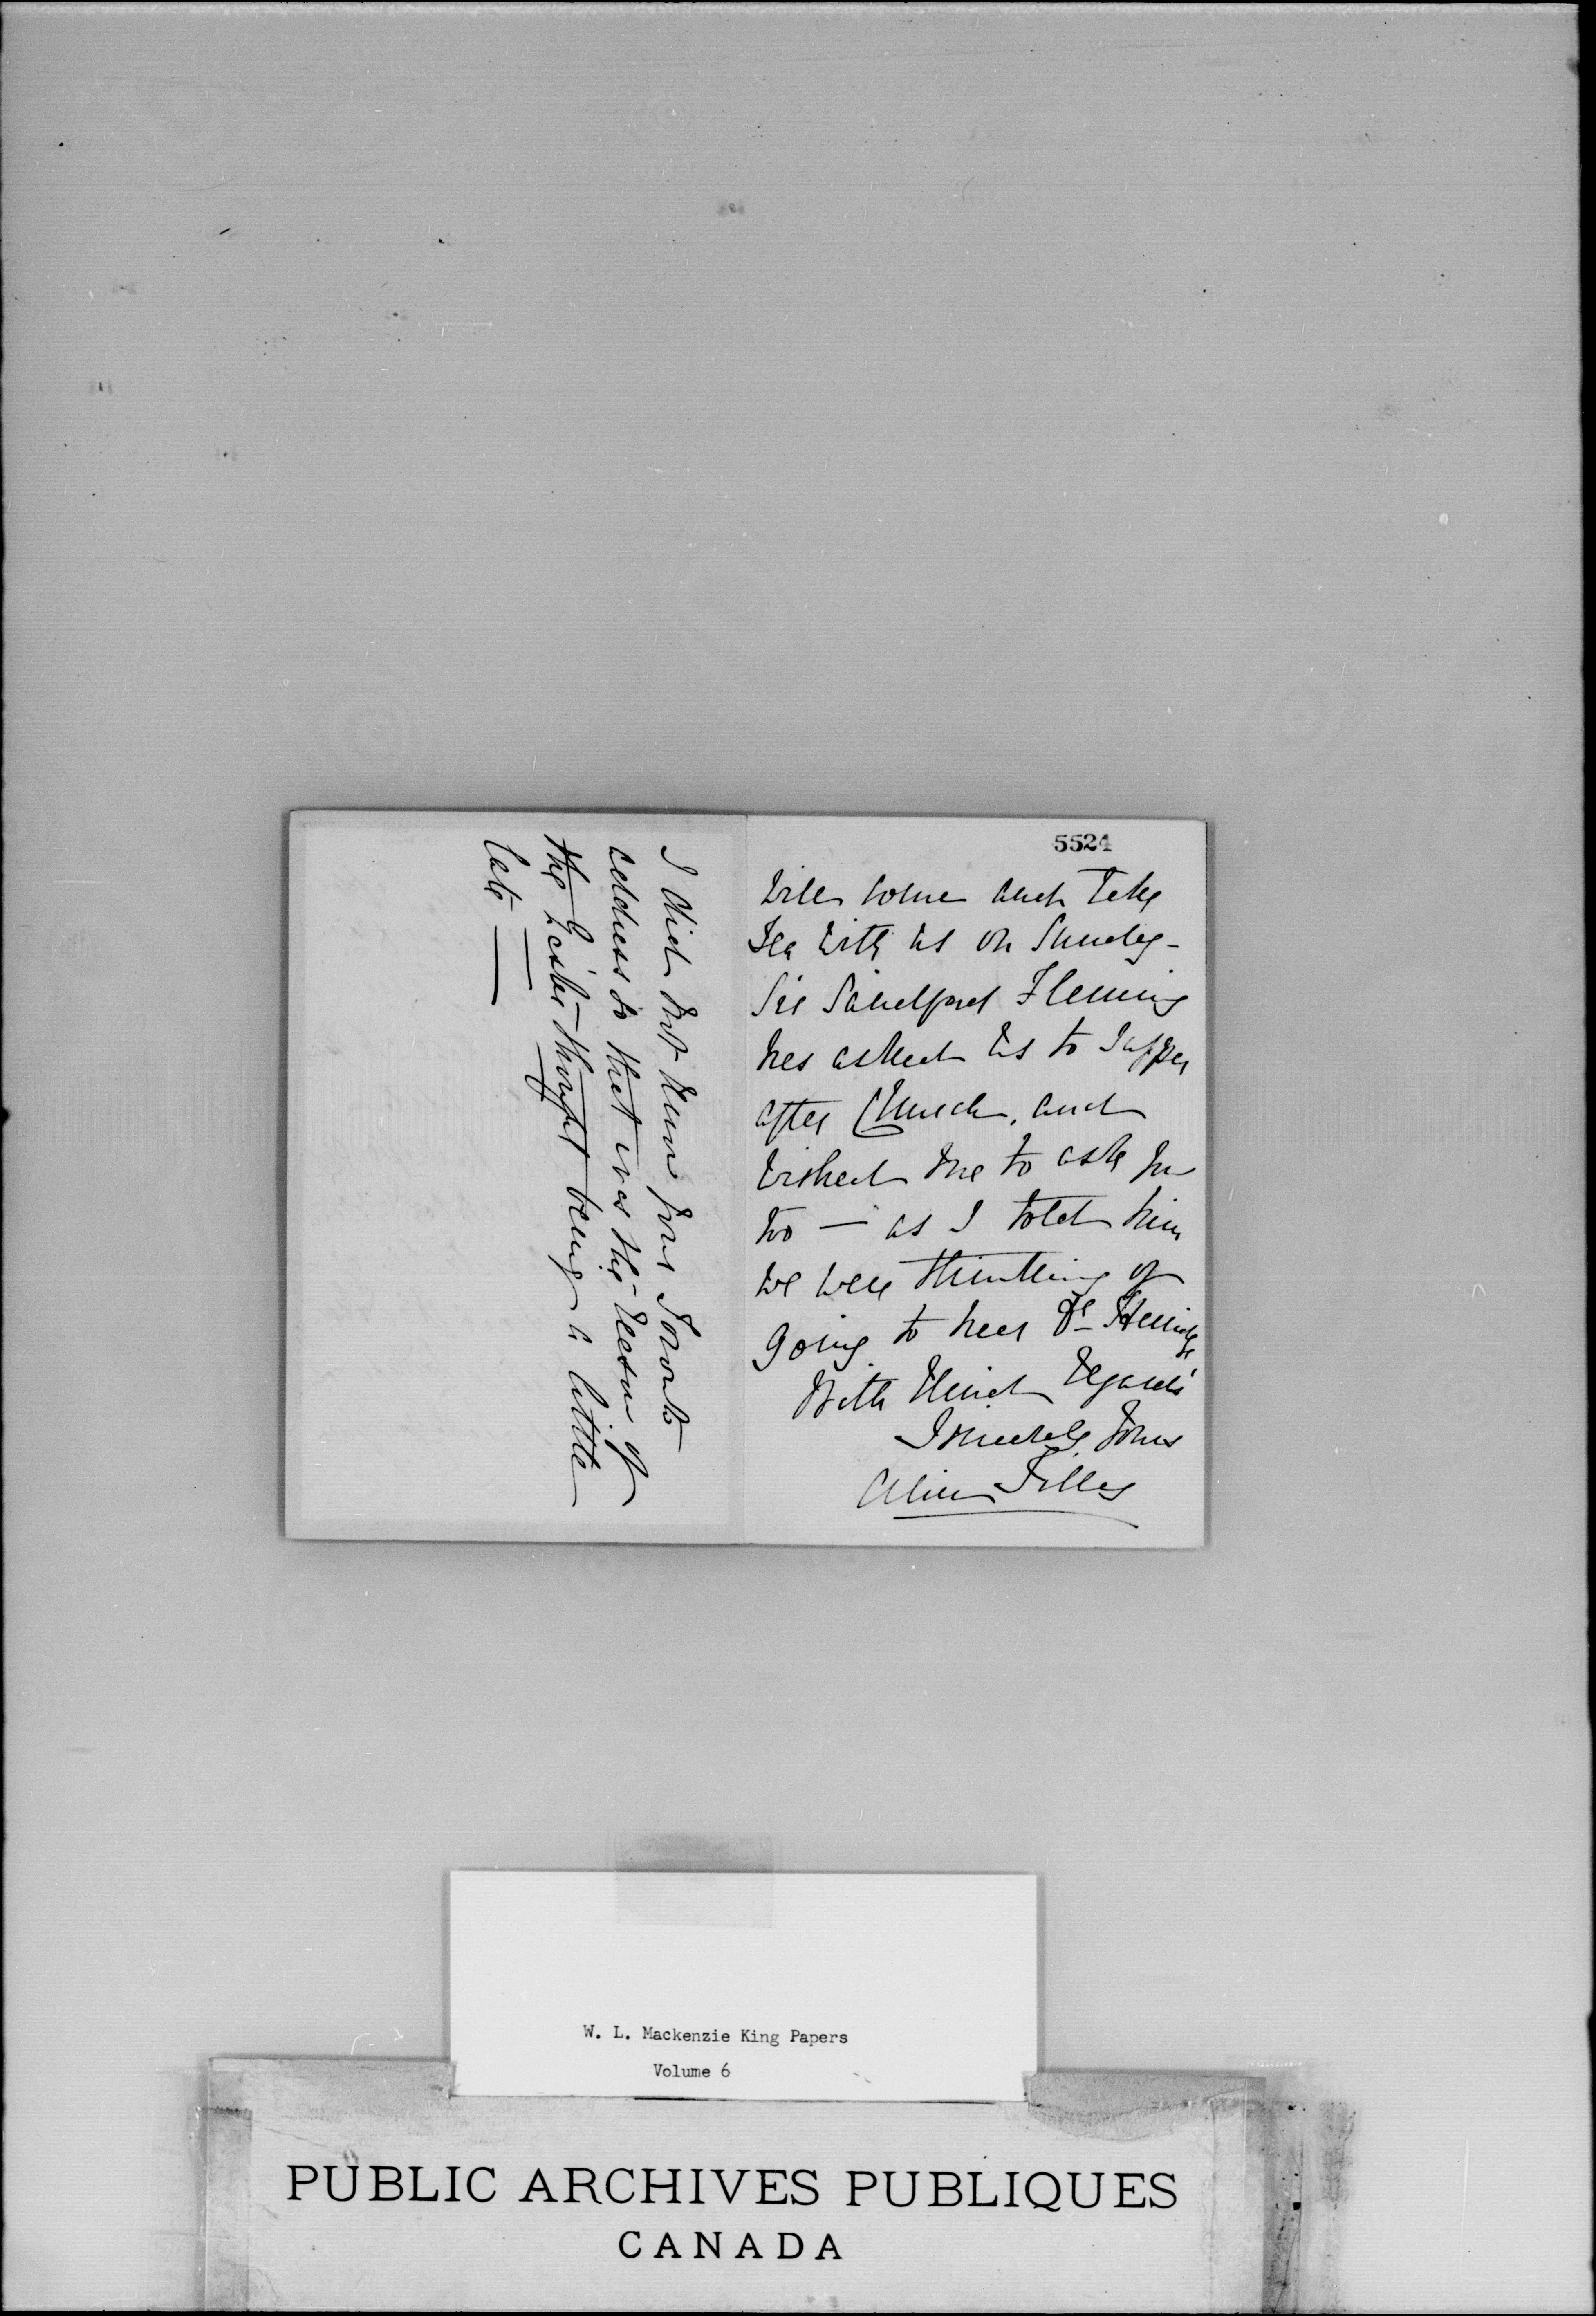 5524
will come and take
Tea with us on Sunday -
Sir Sandford Fleming
has asked us to Supper
after Church, and
wished me to ask you
too — as I told him
we were thinking of
going to hear Dr Herridge
With kind regards
Sincerely Yours
Alice Tilley
I did not know your Toronto
address so that was the reason of
the Easter thought being a little
late —
W. L. Mackenzie King Papers
Volume 6
PUBLIC ARCHIVES PUBLIQUES
CANADA